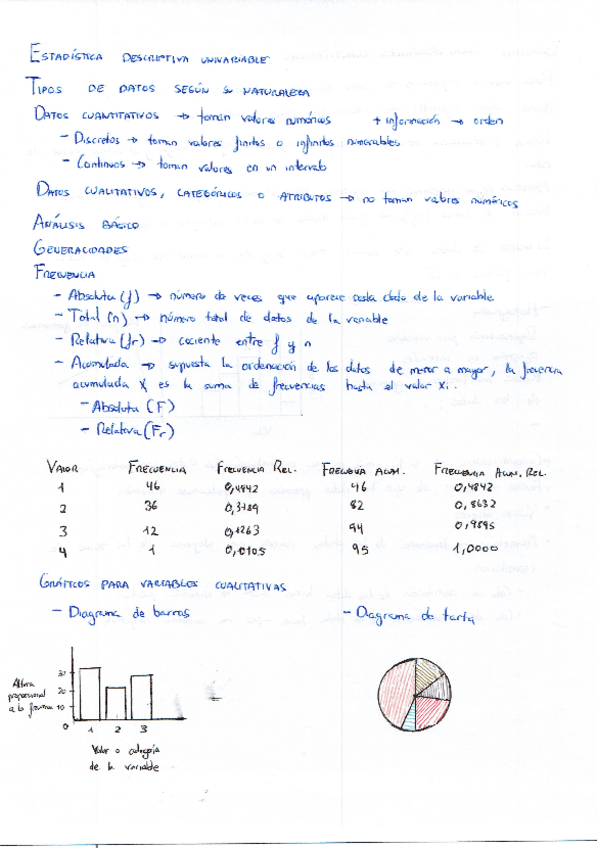 ESTADÍSTICA DESCRIPTIVA UNIVARIABLE
TIPOS DE DATOS SEGÚN SU NATURALEZA
DATOS CUANTITATIVOS → toman valores numéricos + información → orden
- Discretos → toman valores finitos o infinitos numerables
- Continuos → toman valores en un intervalo
DATOS CUALITATIVOS, CATEGÓRICOS O ATRIBUTOS → no toman valores numéricos
ANÁLISIS BÁSICO
GENERALIDADES
FRECUENCIA
- Absoluta (f) → número de veces que aparece cada dato de la variable
- Total (n) → número total de datos de la variable
- Relativa (fr) → cociente entre f y n
- Acumulada → supuesta la ordenación de los datos de menor a mayor, la frecuencia
acumulada X es la suma de frecuencias hasta el valor xi.
- Absoluta (F)
- Relativa (Fr)
VALOR FRECUENCIA FRECUENCIA REL. FRECUENCIA ACUM. FRECUENCIA ACUM. REL.
1 46 0,4842 46 0,4842
2 36 0,3789 82 0,8632
3 12 0,1263 94 0,9895
4 1 0,0105 95 1,0000
GRÁFICOS PARA VARIABLES CUALITATIVAS
- Diagrama de barras - Diagrama de tarta
Altura
proporcional
a la
30
20
10
0
1 2 3
Valor o categoría
de la variable